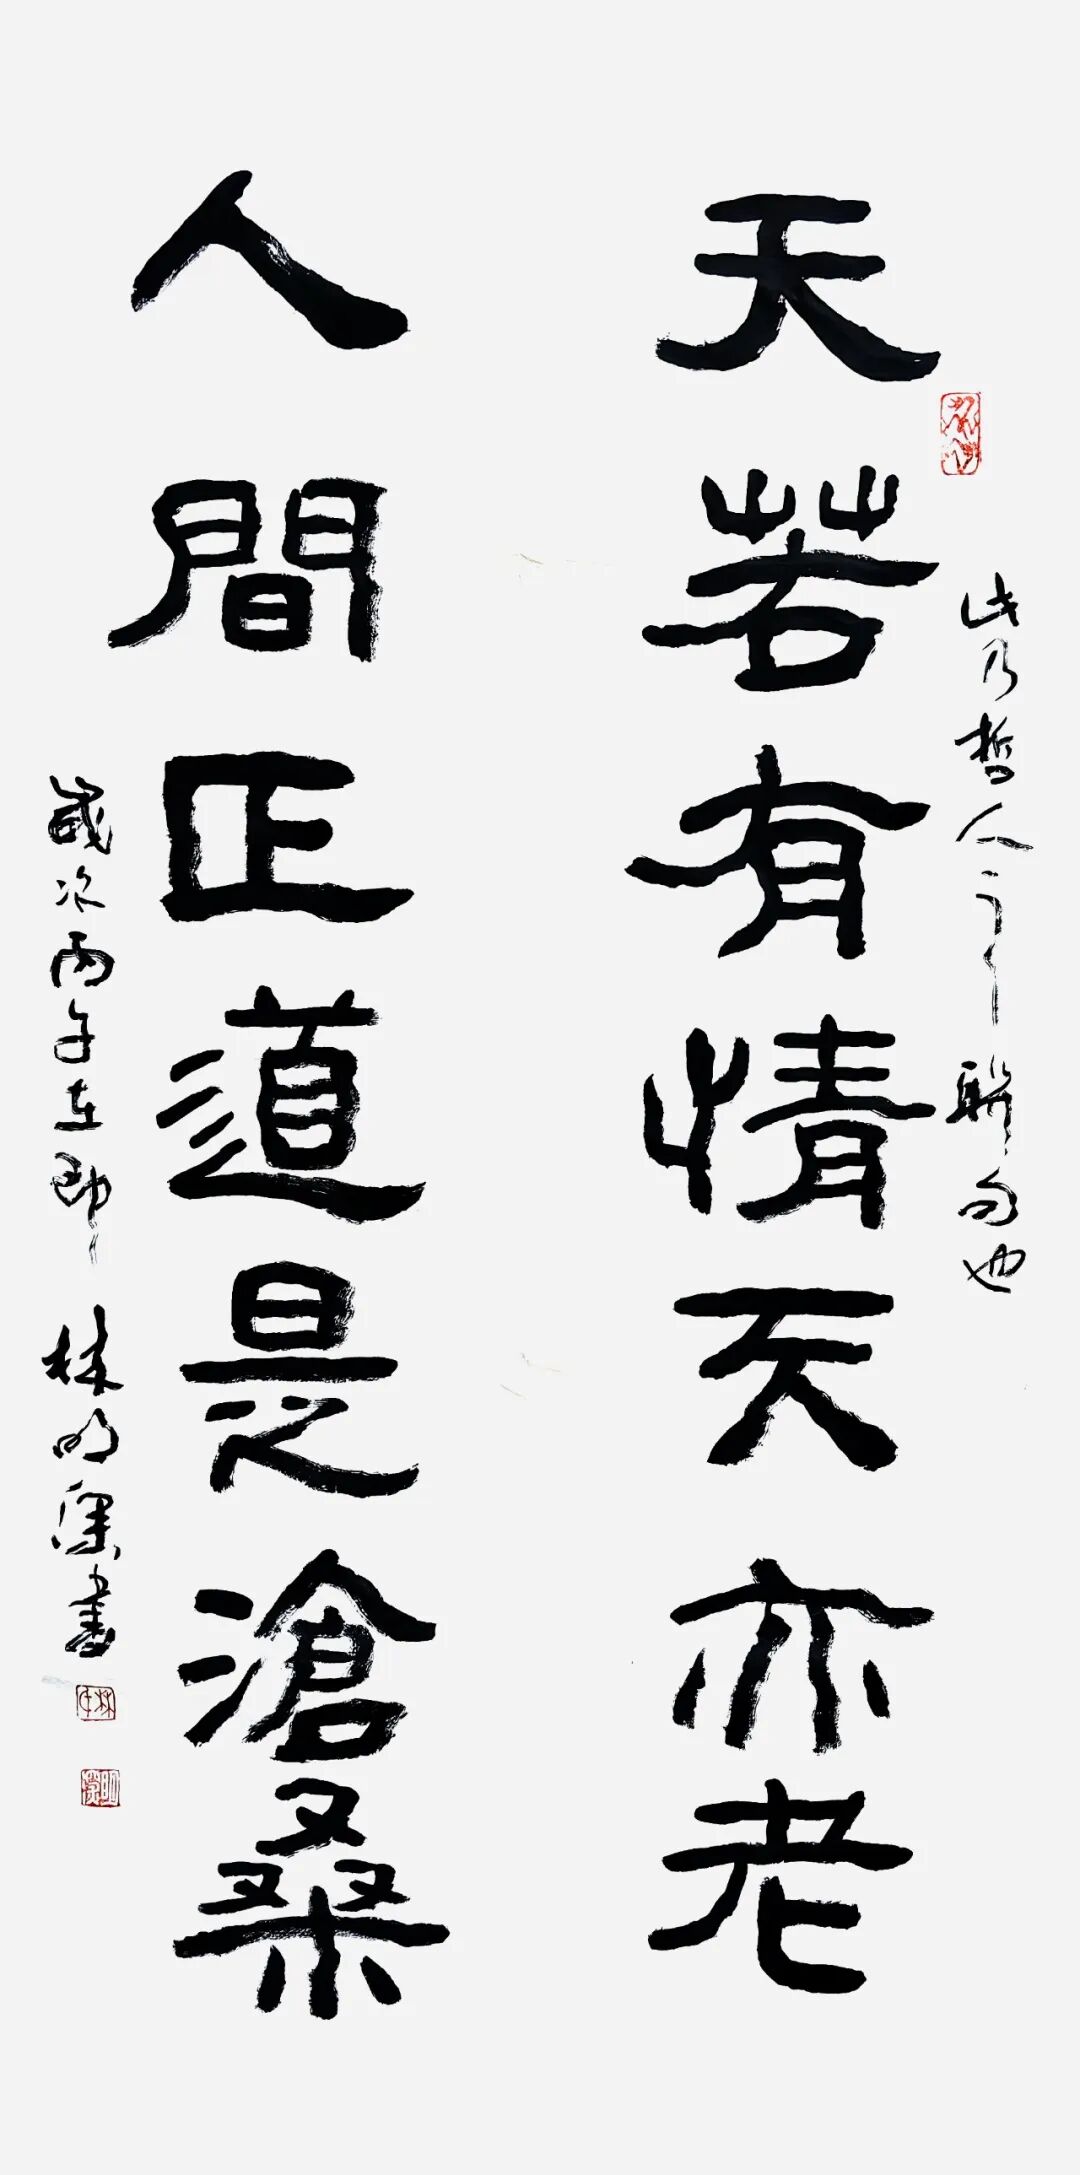 天若有情天亦老
此乃哲人之聯句也
人間正道是滄桑
歲次丙午在即林明深書